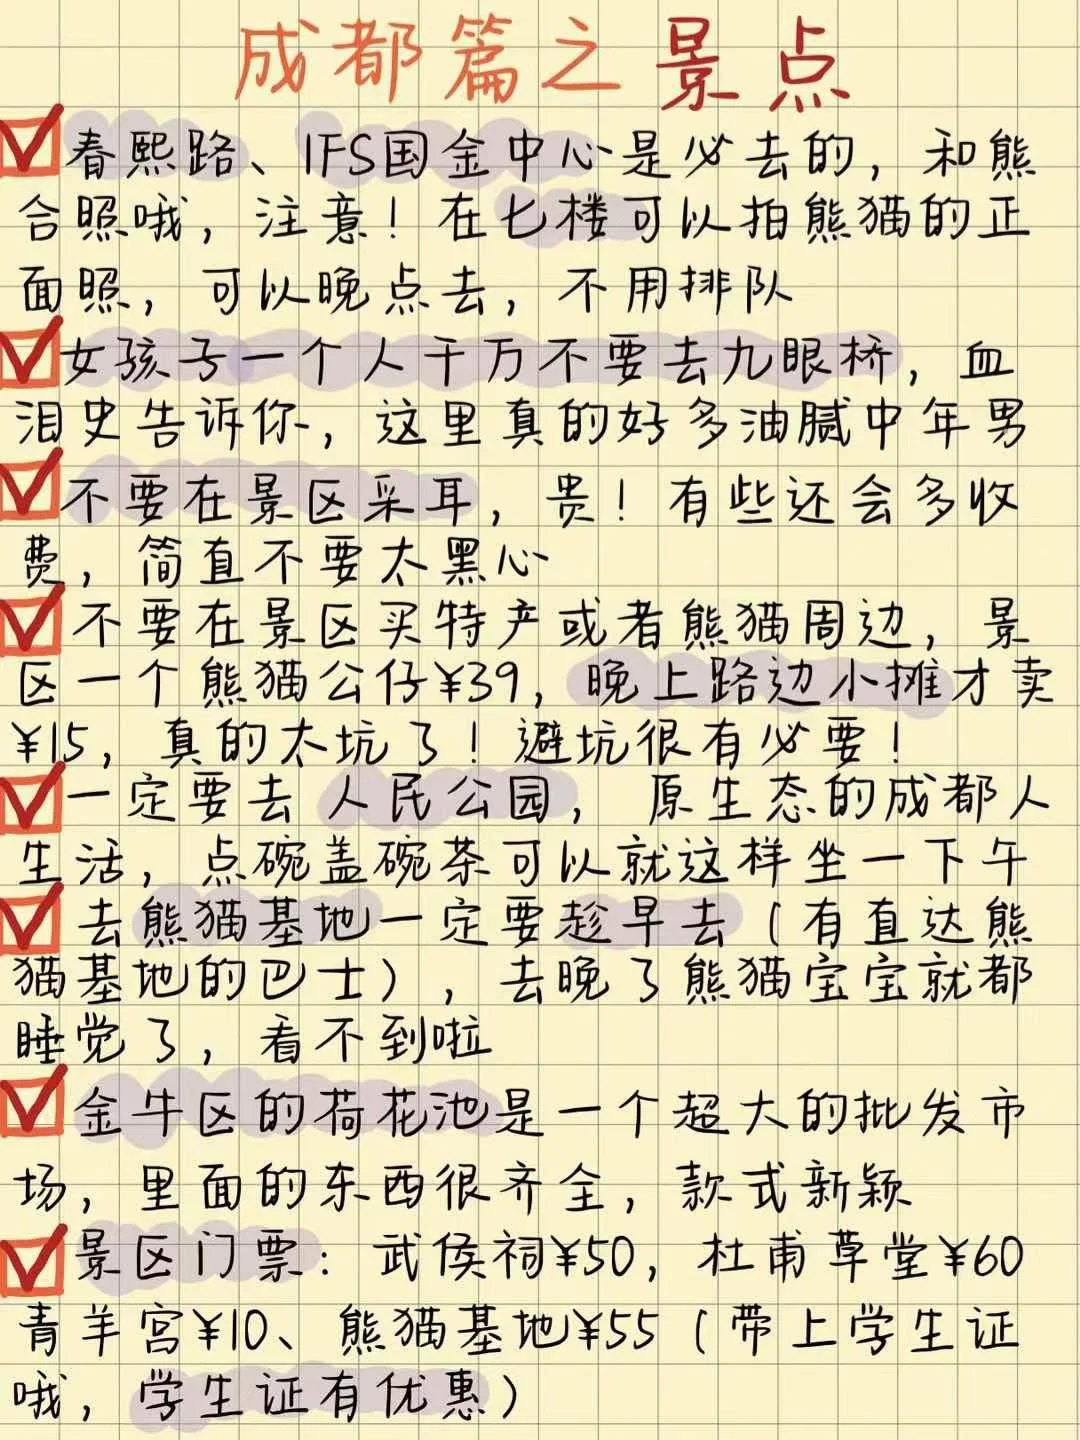 成都篇之景点
春熙路、IFS国金中心是必去的，和熊
合照哦，注意！在七楼可以拍熊猫的正
面照，可以晚点去，不用排队
女孩子一个人千万不要去九眼桥，血
泪史告诉你，这里真的好多油腻中年男
不要在景区采耳，贵！有些还会多收
费，简直不要太黑心
不要在景区买特产或者熊猫周边，景
区一个熊猫公仔¥39，晚上路边小摊才卖
¥15，真的太坑了！避坑很有必要！
一定要去人民公园，原生态的成都人
生活，点碗盖碗茶可以就这样坐一下午
去熊猫基地一定要趁早去（有直达熊
猫基地的巴士），去晚了熊猫宝宝就都
睡觉了，看不到啦
金牛区的荷花池是一个超大的批发市
场，里面的东西很齐全，款式新颖
景区门票：武侯祠¥50，杜甫草堂¥60
青羊宫¥10、熊猫基地¥55（带上学生证
哦，学生证有优惠）